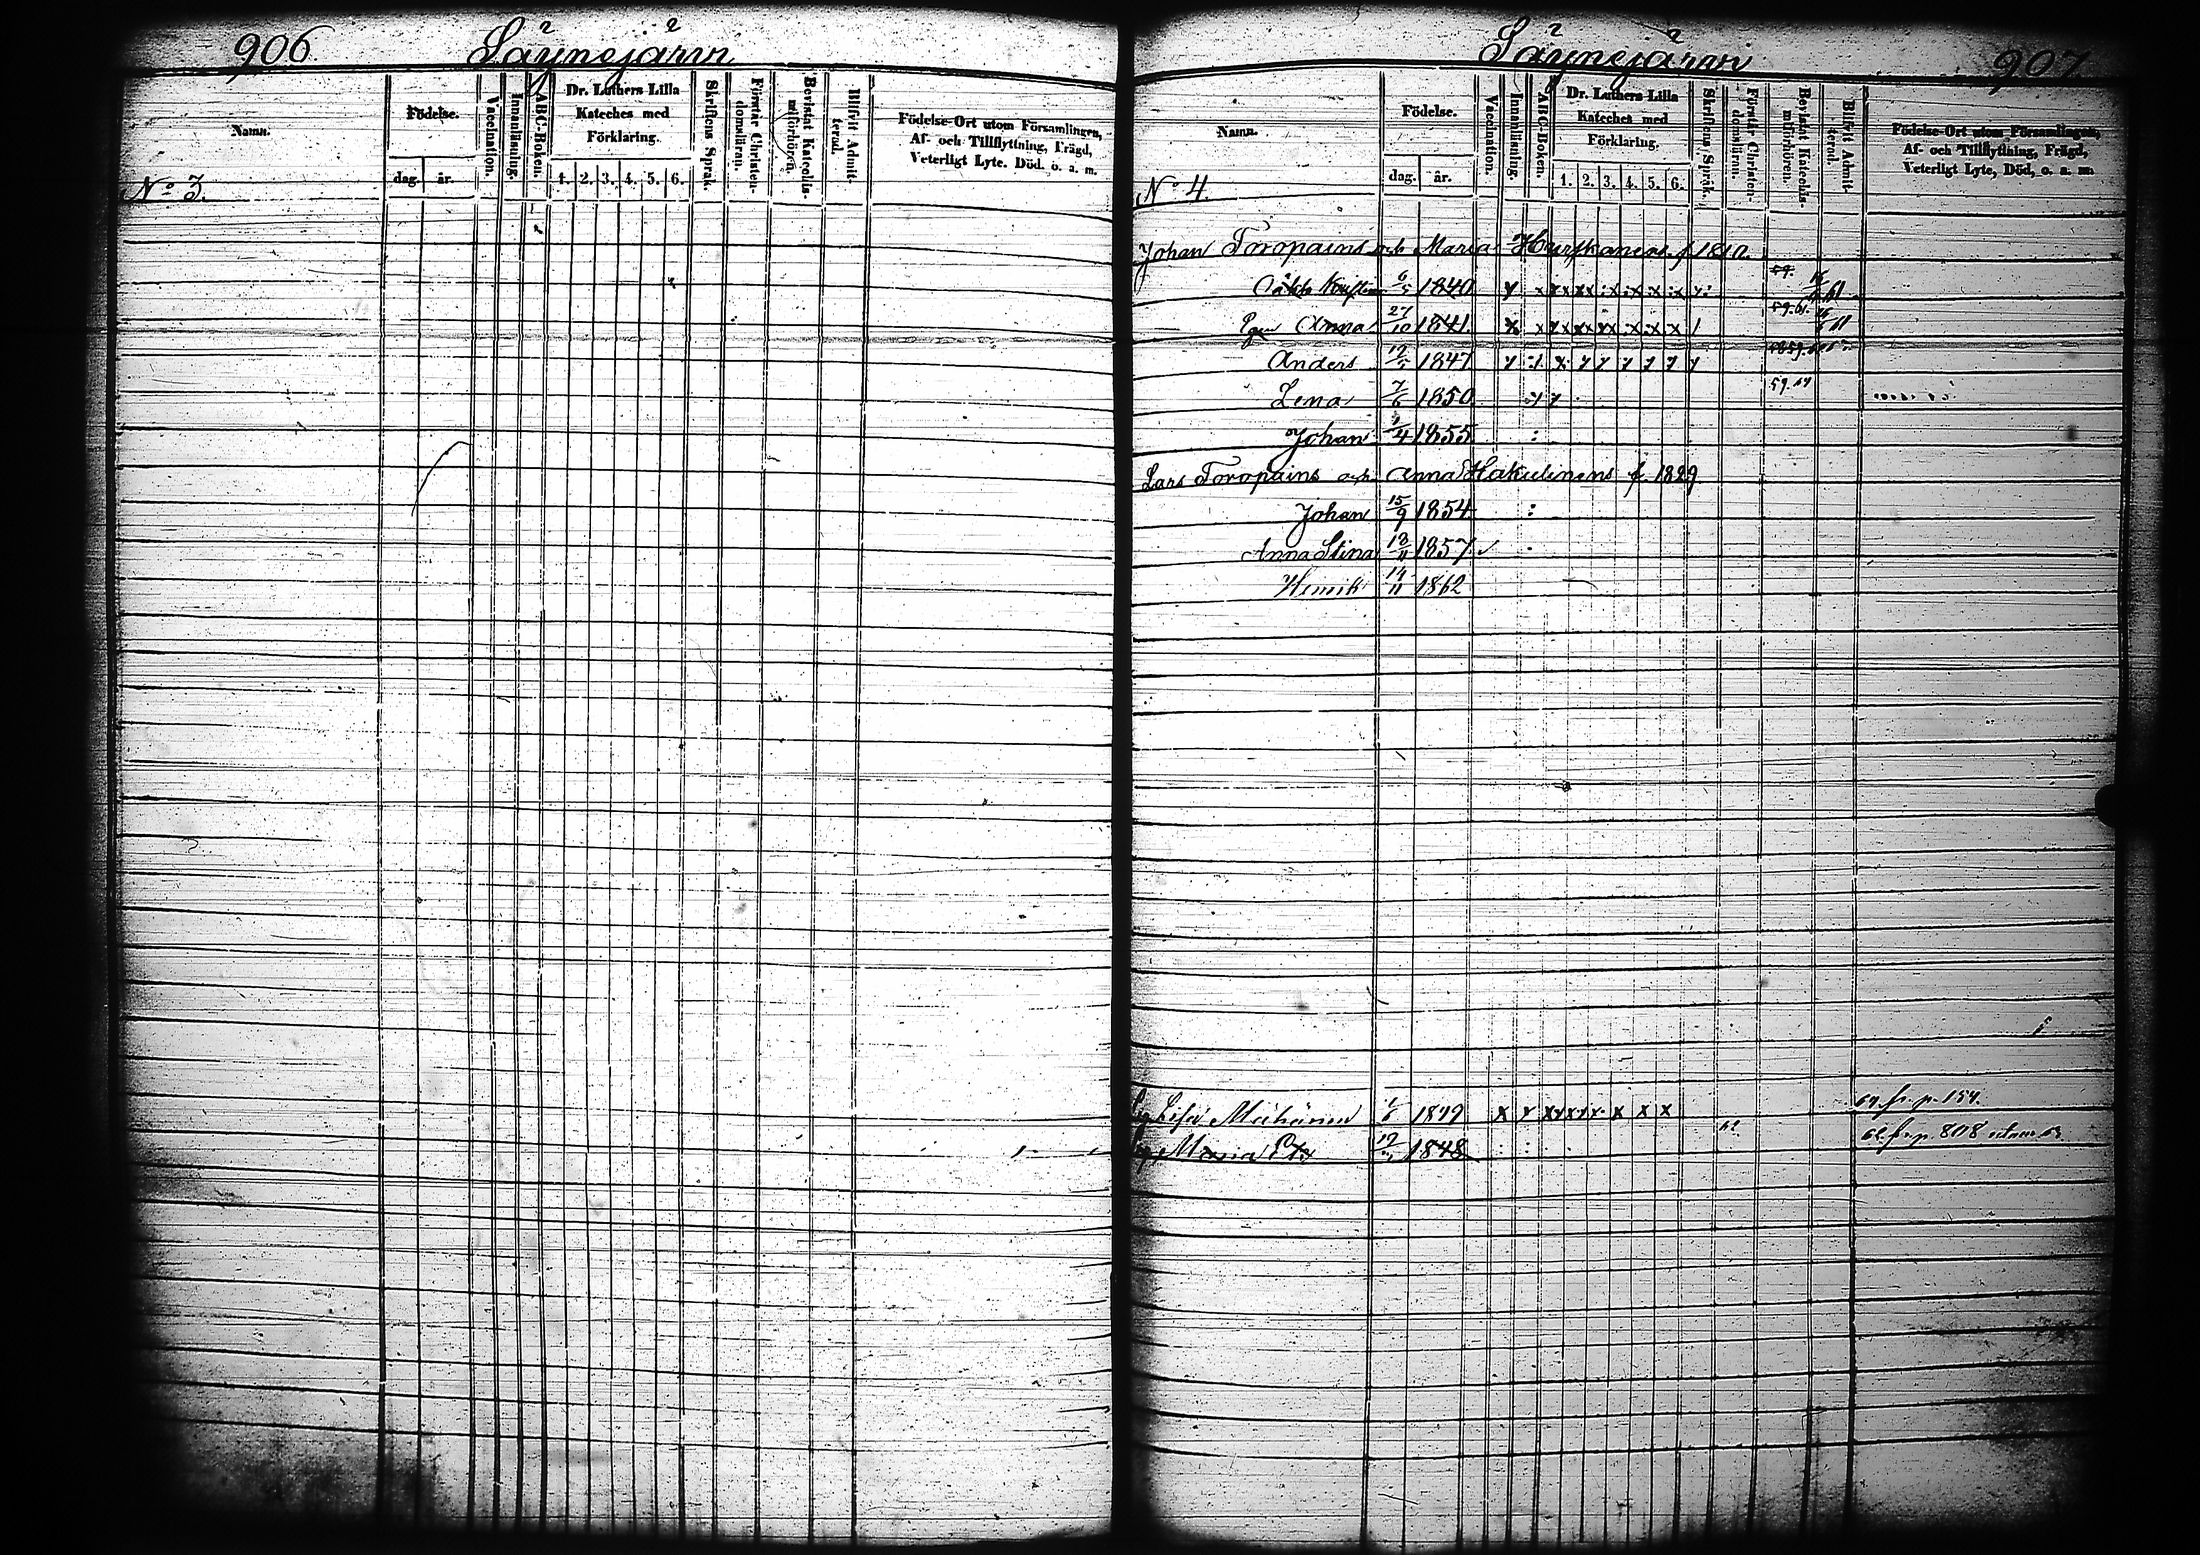 906. Säynejärvi
Namn.
Födelse.
dag. år.
Vaccination.
Innanläsning.
ABC-Boken.
Dr. Luthers Lilla
Kateches med
Förklaring.
1. 2. 3. 4. 5. 6.
Skriftens Språk.
Förstår Christen-
domsläran.
Bevistat Katechis-
miförhören.
Blifvit Admit-
terad.
Födelse-Ort utom Församlingen,
Af- och Tillflyttning, Frägd,
Veterligt Lyte. Död. o. a. m.
No 3.
Säynejärvi 907.
Namn.
Födelse.
dag. år.
Vaccination.
Innanläsning.
ABC-Boken.
Dr. Luthers Lilla
Kateches med
Förklaring.
1. 2. 3. 4. 5. 6.
Skriftens Språk.
Förstår Christen-
domsläran.
Bevistat Katechis-
miförhören.
Blifvit Admit-
terad.
Födelse-Ort utom Församlingen,
Af- och Tillflyttning, Frägd,
Veterligt Lyte, Död, o. a. m.
No 4.
Johan Toropains och Maria f. 1810.
6/5 1840
Anna 27/10 1841. 59.61.
Anders 1847
Lena 7/6 1850 59.
Johan 1855
Lars Toropains och Anna Hakulinens f. 1829
Johan 15/9 1854
Anna Stina 13/11 1857
Henrik 14/11 1862
Lisa 1849 64. fr. p. 154.
Maria 1848 62 62. fr. p. 808